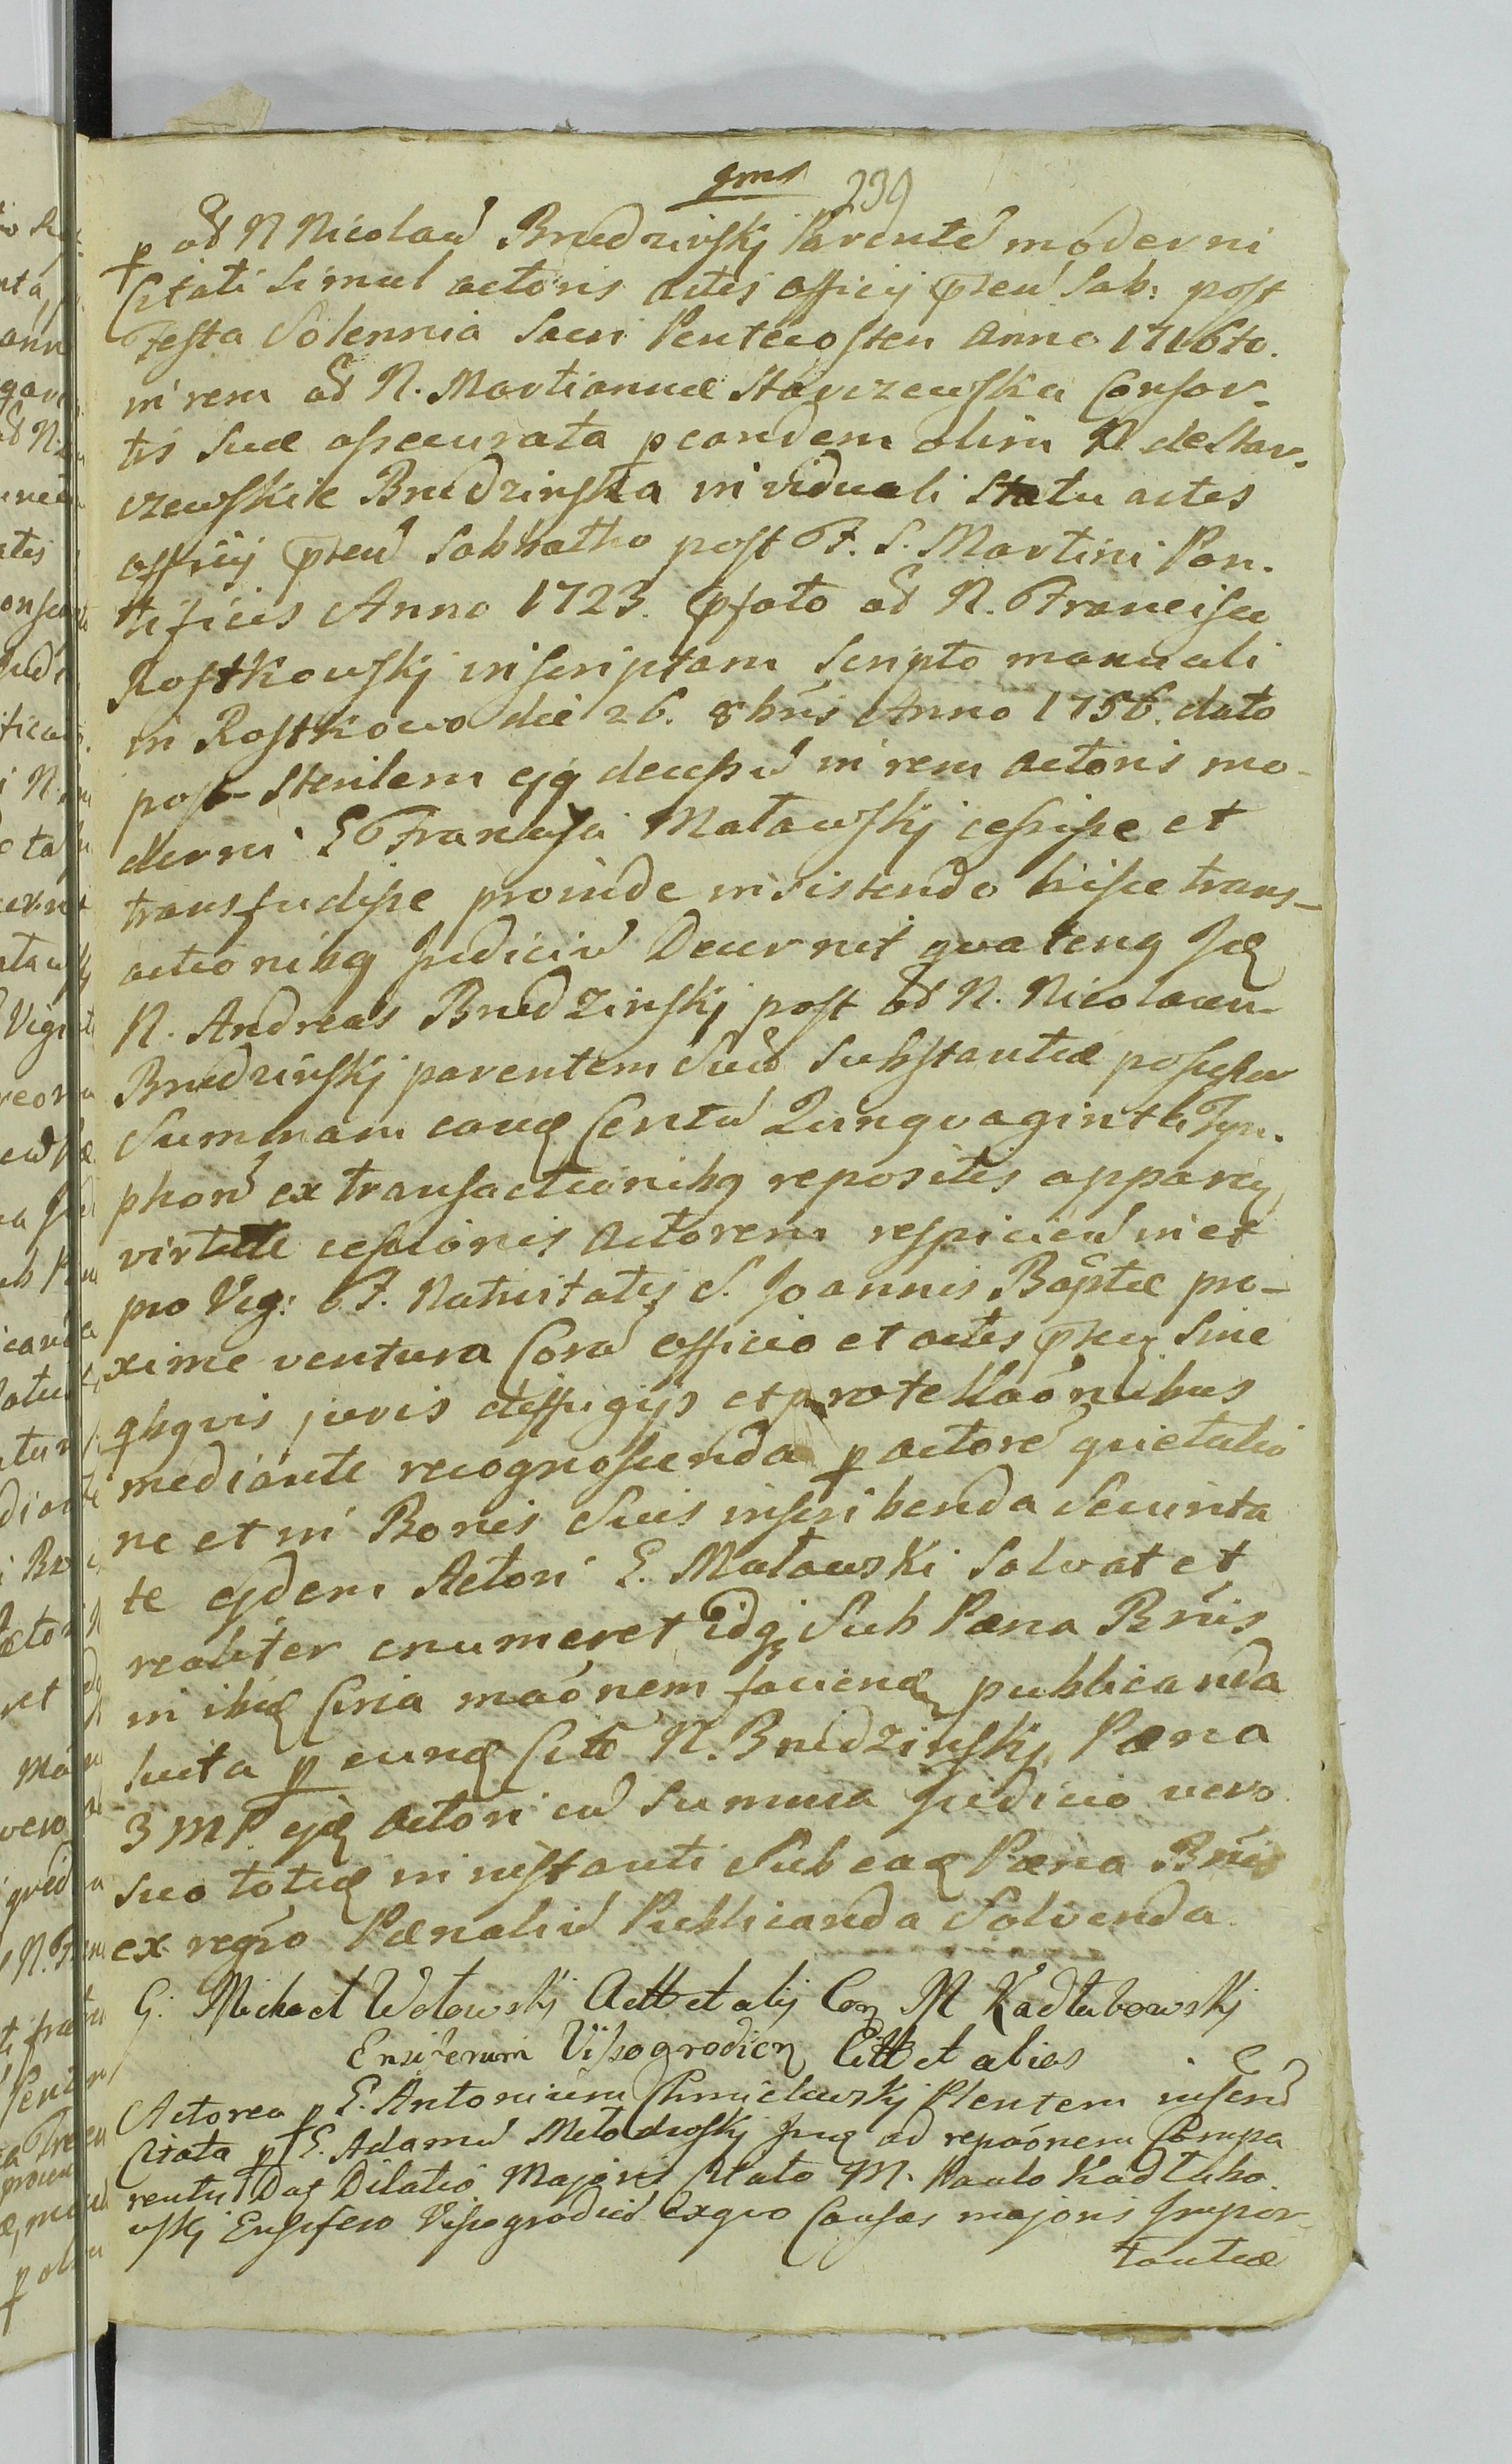 gms 239
p od N Nicolaū Brudzinskj Parentē moderni
Citati simul actoris actis officij pnū Sab: post
Festa Solennia Sacri Pentecosten Anno 1716to.
in rem od N. Martiannæ Stavczewska Consor-
tis suæ assecurata p eandem olim N de Stav-
czewskie Brudzinska in viduali Statu actis
officij pntiū Sabbatho post F. S. Martini Pon-
tificis Anno 1723. pfato od N. Francisco
Rostkowskj inscriptam Scripto manuali
in Rostkowo die 26. 8bris Anno 1756. dato
post sterilem ejq decessū in rem actoris mo-
derni G Francisci Matawskj cessisse et
transfudisse proinde insistendo hisce trans-
actionibq Judiciū Decernit qvatenq Id
N. Andreas Brudzinskj post od N. Nicolaum
Brudzinskj parentem Suū Substantiæ possessor
Summam eanq Centū Qvinqvaginta Tyn-
phorū ex transactionibq repositis apparen
virtute cessionis Actorem respicien in et
pro Vig: F. Nativitatis S. Joannis Baptæ pro-
xime ventura Corā officio et actis pntibq Sine
qbqvis juris diffugijs et protellaónibus
mediante recognoscenda p actorē qvietatio
ne et in Bonis Suis inscribenda Securita
te ejdem Actori G. Matawski Solvat et
realiter enumeret Idq Sub Pæna Bnis
in ibid Cria maónem facien publicanda
luita p eund Citō N. Brudzinskj Pæna
3 MP. ejd Actori cū Summa Judicio vero
suo totid in instanti Sub ead Pæna Bnis
ex regro Pænaliū Publicanda Solvenda
G. Michael Wotowskj Actt et alij Con M Kadłubowskj
Ensiferum Vissogrodien Citt et alios
Actorea p G. Antonium Chmielewskj Plentem
Citata p G. Adamū Metodwskj ad repóonem Compa
rentū Dat Dilatio Majoris Citato M. Paulo Kadłubo
wskj Ensifero Vissogrodień Exqvo Causas majoris Impor-
tantiæ